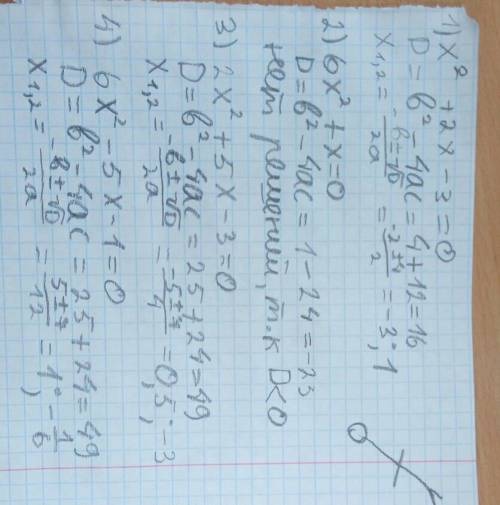 1) x² + 2x - 3 = 0
D = b² - 4ac = 4 + 12 = 16
x₁,₂ = (-b ± √D)/2a = (-2 ± 4)/2 = -3; 1
2) 6x² + x = 0
D = b² - 4ac = 1 - 24 = -23
нет решений, т.к D < 0
3) 2x² + 5x - 3 = 0
D = b² - 4ac = 25 + 24 = 49
x₁,₂ = (-b ± √D)/2a = (-5 ± 7)/4 = 0,5; -3
4) 6x² - 5x - 1 = 0
D = b² - 4ac = 25 + 24 = 49
x₁,₂ = (-b ± √D)/2a = (5 ± 7)/12 = 1; -1/6